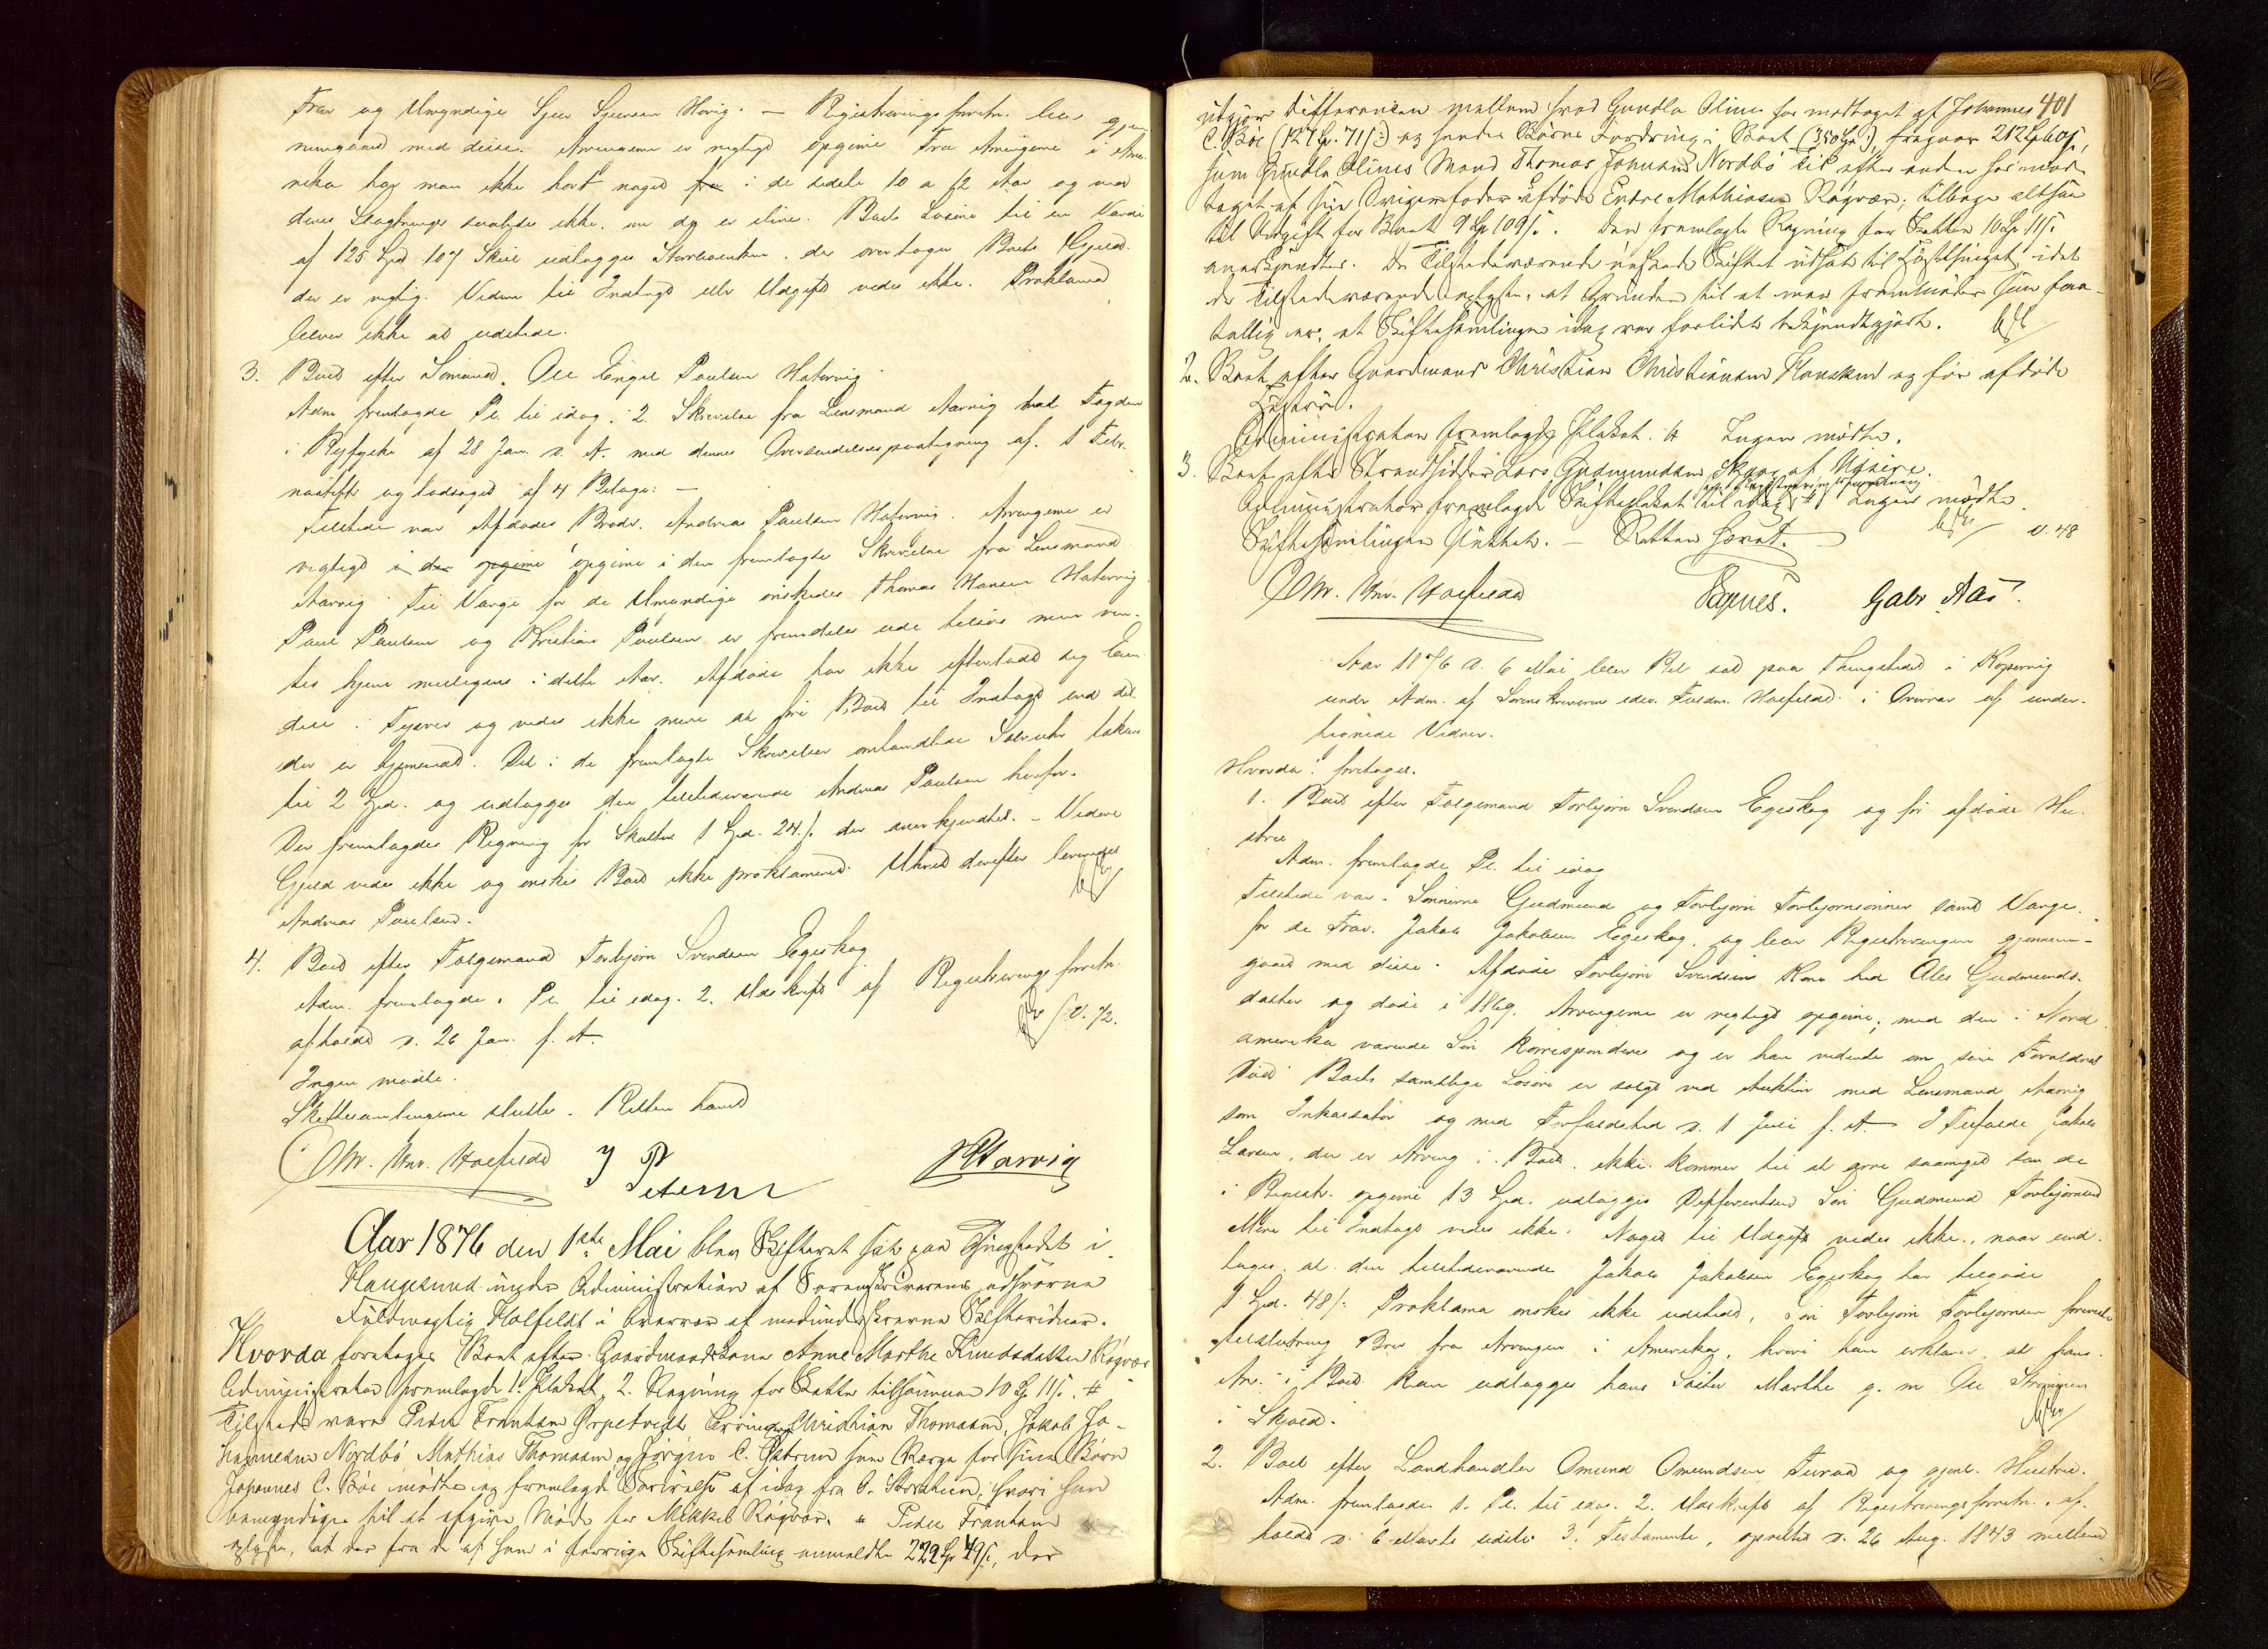 Frav. og Umyndige Sjur Sjursen Hervig. — Registreringsforretn. blev gjen-
nemgaaet med disse. Arvingerne er rigtigt opgivne. Fra Arvingerne i Ame-
rika har man ikke hørt noget i de sidste 10 a 12 Aar og ved
deres Slægtninge saaledes ikke, om de er ilive. Boets Løsøre til en Værdi
af 125 Spd. 107 Skill. udlægges Stervboenken, der overtager Boets Gjæld.
der er rigtig. Videre til Indtægt eller Udgift vides ikke. Proklama
bliver ikke at udstede.
3. Boet efter Sømand Ole Engel Paulsen Hatervig
Adm. fremlagde Pl. til idag. 2. Skrivelse fra Lensmand Aarvig til Fogden
i Ryfylke af 28 Jan. d. A. med dennes Oversendelsespaategning af 1 Febr.
næstefter og ledsaget af 4 Bilage: —
Tilstede var Afdødes Broder Andreas Paulsen Hatervig. Arvingerne er
rigtigt i den opgivne opgivne i den fremlagte Skrivelse fra Lensmand
Aarvig. Til Værge for de Umyndige ønskedes Thomas Hansen Hatervig.
Paul Paulsen og Christian Paulsen er fremdeles ude tilsøes men ven-
tes hjem muligens i dette Aar. Afdøde har ikke efterladt sig Eien-
dele i Tysvær og vides ikke mere at føre Boet til Indtægt end det
der er hjemsendt. Det i de fremlagte Skrivelser omhandlede Sølvuhr takseres
til 2 Spd. og udlægges den tilstedeværende Andreas Paulsen herfor.
Der fremlagdes Regning for Skatter 1 Spd. 24 s. der anerkjendtes. — Videre
Gjæld vides ikke og ønskes Boet ikke proklameret. Uhret derefter leveredes
Andreas Paulsen.
4. Boet efter Følgemand Torbjørn Svendsen Egeskog
Adm. fremlagde 1. Pl. til idag. 2. Udskrift af Registreringsforretn.
afholdt d. 26 Jan. f. A.
Ingen mødte.
Skiftesamlingerne sluttet. Retten hævet
Chr. Holfeldt J P Petersen Aarvig
Aar 1876 den 1ste Mai blev Skifteret sat paa Thingstedet i
Haugesund under Administration af Sorenskriverens edsvorne
Fuldmægtig Holfeldt i Overvær af medunderskrevne Skiftevidner.
Hvorda foretoges Boet efter Gaardmandskone Anne Marthe Knudsdatter Røgvær
Administrator fremlagde 1. Plakat, 2. Regning for Skatter tilsammen 10 Sp. 11 s. #
Tilstede vare Peder Frantsen Christian Thomasen, Jakob Jo-
hannesen Nordbø Mathias Thomasen og Jørgen C. som Værge for sine Børn
Johannes C. Bøe mødte og fremlagde Skrivelse af idag fra hvori han
bemyndiges til at afgive Møde for Mikkel Røgvær. # Peder Frantsen
oplyste, at der fra de af ham i forrige Skiftesamling anmeldte 222 Sp 49 s., der
401
udgjør Differencen mellem hvad Gundla Oline har modtaget af Johannes
C. Bøe (127 Sp. 71 s.) og hendes Børns Fordring i Boet (350 Sp.), fragaar 212 Sp 60 s,
som Gundla Olines Mand Thomas Johnsen Nordbø Tid efter anden har mod-
taget af sin Svigerfader afdøde Endre Mathiasen Røgvær; tilbage altsaa
til Udgift for Boet 9 Sp 109 s. Den fremlagte Regning for Skatter 10 Sp. 11 s
anerkjendtes. De Tilstedeværende ønskede Skiftet udsat til Høstthinget, idet
de Tilstedeværende oplyste, at Grunden til at man fremmøder saa faa-
tallig er, at Skiftesamlingen idag var forlidet bekjendtgjort.
2. Boet efter Gaardmand Christian Christiansen Hauske og før afdøde
Hustru.
Administrator fremlagde Plakat. # Ingen mødte.
3. Boet efter Strandsidder Lars Gudmundsen Skaar af Utsire.
Administrator fremlagde Skifteplakat til idag # Ingen mødte
Skiftesamlingen sluttet. — Retten hævet. v. 48
Chr. Holfeldt Gabr. Aas.
Aar 1876 d. 6 Mai blev Ret sat paa Thingstedet i Kopervig
under Adm. af Sorenskriverens edsv. Fuldm. Holfeldt i Overvær af under-
tegnede Vidner.
Hvorda foretoges.
1. Boet efter Følgemand Torbjørn Svendsen Egeskog og før afdøde Hu-
stru
Adm. fremlagde Pl. til idag
Tilstede var. Sønnerne Gudmund og Torbjørn Torbjørnsønner samt Værge
for de Frav. Jakob Jakobsen Egeskog, og blev Registreringen gjennem-
gaaet med disse. Afdøde Torbjørn Svendsens Kone hed Ales Gudmunds-
datter og døde i 1869. Arvingerne er rigtigt opgivne; med den i Nord-
amerika værende Søn korresponderes og er han vidende om sine Forældres
Død. Boets samtlige Løsøre er solgt ved Auktion med Lensmand Aarvig
som Inkassator og med Forfaldstid d. 1 Juli f. A. I Tilfælde Jakob
Larsen, der er Arving i Boet, ikke kommer til at arve saameget som de
i Registr. opgivne 13 Spd. udlægges Differentsen Søn Gudmund Torbjørnsen
Mere til Indtægt vides ikke. Noget til Udgift vides ikke, naar und-
tages, at den tilstedeværende Jakob Jakobsen Egeskog har tilgode
1 Spd. 48 s. Proklama ønskes ikke udstedt, Søn Torbjørn Torbjørnsen foreviste
Brev fra Arvingen i Amerika, hvori han erklærer, at hans
Arv i Boet kan udlægges hans Søster Marthe g. m. Ole
i Skjold.
2. Boet efter Landhandler Omund Omundsen Tveraa og gjenl. Hustru.
Adm. fremlagde 1. Pl. til idag. 2. Udskrift af Registreringsforretn. af-
holdt d. 6 Marts sidstl. 3. Testamente, oprettet d. 26 Aug. 1843 mellem